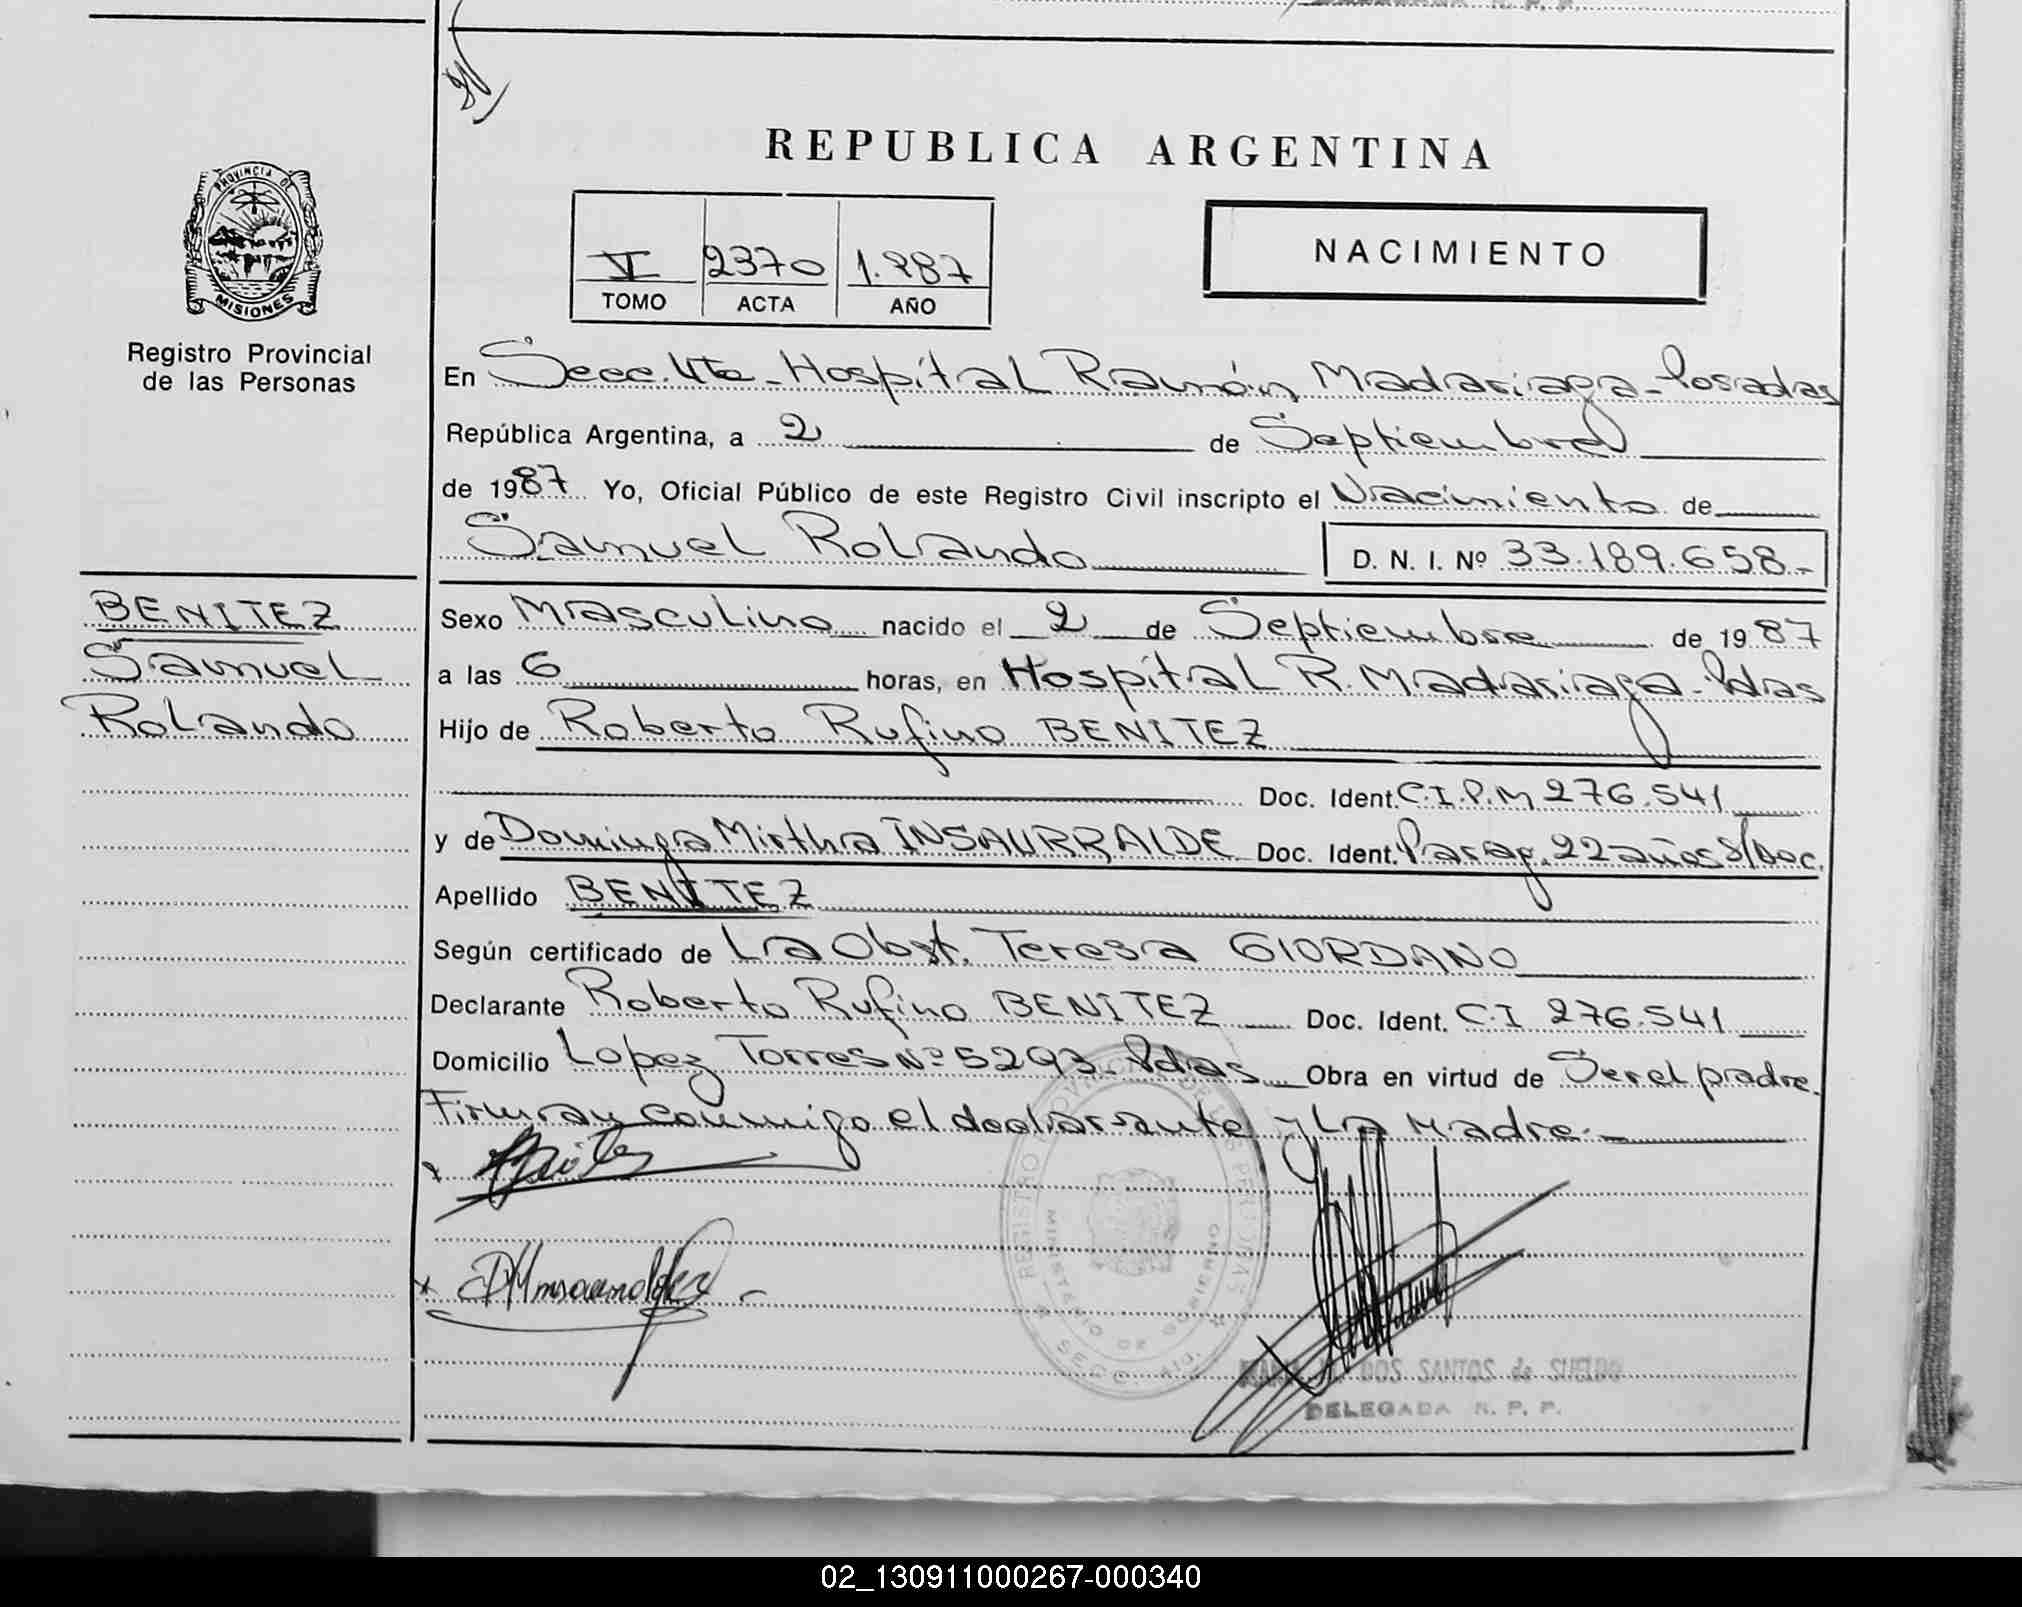 REPUBLICA ARGENTINA
PROVINCIA DE
MISIONES
Registro Provincial
de las Personas
V 2370 1.987
TOMO ACTA AÑO
NACIMIENTO
En Secc. 4ta - Hospital Ramón Madariaga - Posadas
República Argentina, a 2 de Septiembre
de 1987 Yo, Oficial Público de este Registro Civil inscripto el Nacimiento de
Samuel Rolando D. N. I. Nº 33.189.658.-
BENITEZ
Samuel
Rolando
Sexo Masculino nacido el 2 de Septiembre de 1987
a las 6 horas, en Hospital R. Madariaga - Pdas
Hijo de Roberto Rufino BENITEZ
Doc. Ident. C.I.P.M 276.541
y de Dominga Mirtha INSAURRALDE Doc. Ident. Parag. 22 años S/Doc.
Apellido BENITEZ
Según certificado de La Obst. Teresa GIORDANO
Declarante Roberto Rufino BENITEZ Doc. Ident. C.I 276.541
Domicilio Lopez Torres Nº 5293 - Pdas Obra en virtud de Ser el padre.
Firman conmigo el declarante y La Madre.-
REGISTRO PROVINCIAL DE LAS PERSONAS
MINISTERIO DE GOBIERNO
SECC.
DOS SANTOS de SUELDO
DELEGADA R. P. P.
02_130911000267-000340